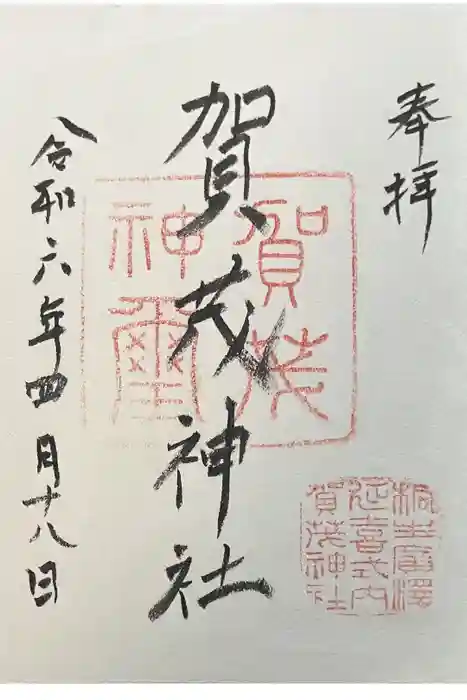 奉拝
賀茂神社
令和六年四月十八日
賀茂
神璽
桐生廣澤
延喜式内
賀茂神社